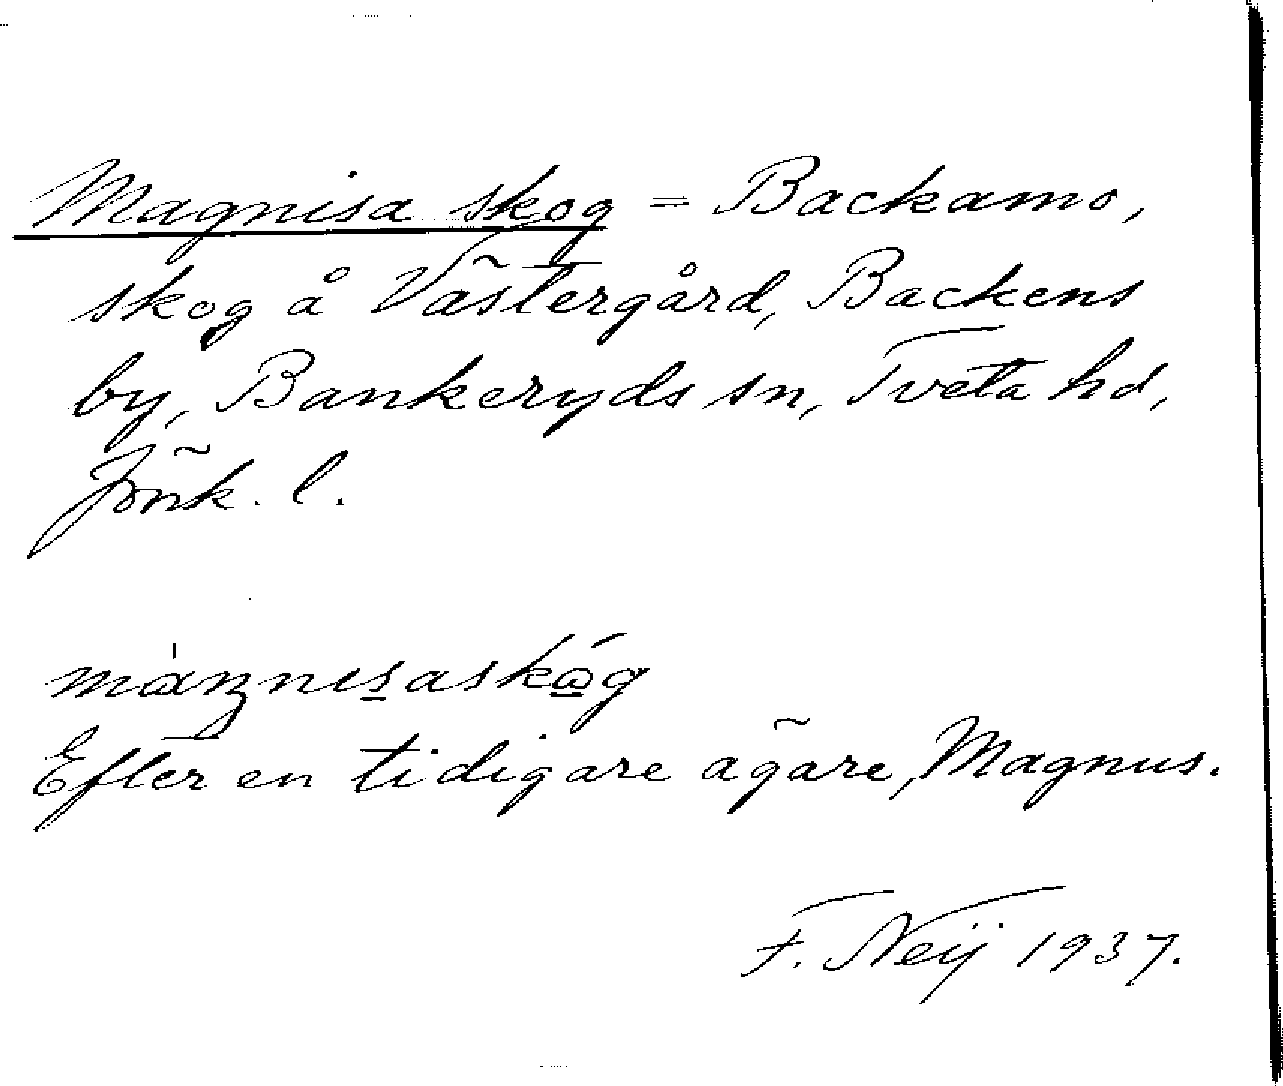 Magnisa skog = Backamo,
skog å Västergård, Backens
by, Bankeryds sn, Tveta hd,
Jönk. l.
Efter en tidigare ägare, Magnus.
F. Neij 1937.